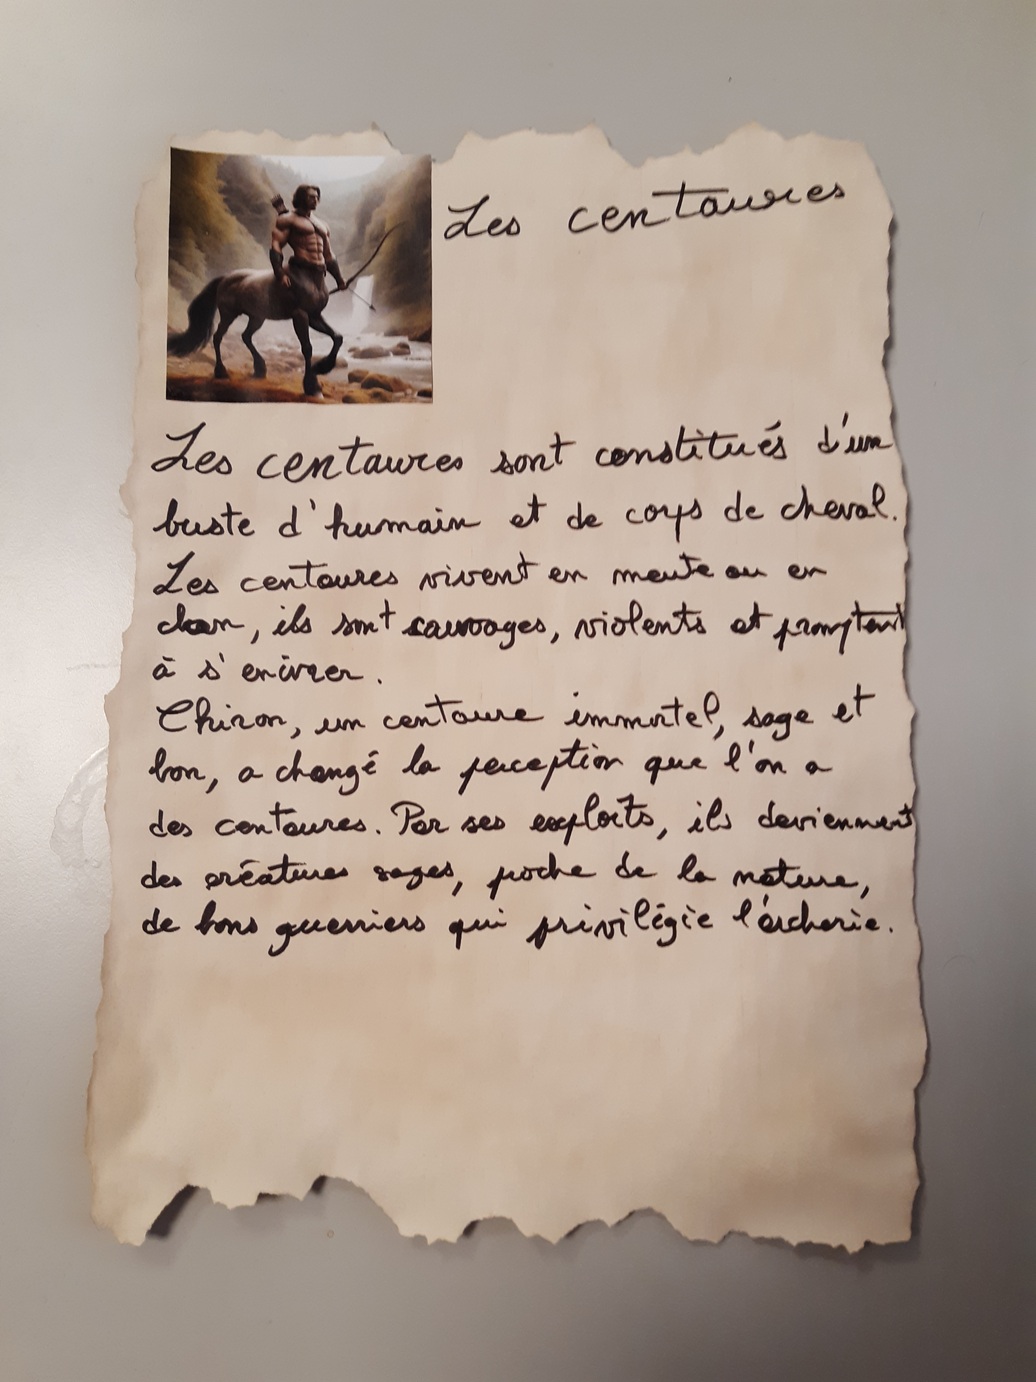 Les centaures
Les centaures sont constitués d'un
buste d'humain et de corps de cheval.
Les centaures vivent en meute ou en
clan, ils sont sauvages, violents et promptent
à s'enivrer.
Chiron, un centaure immortel, sage et
bon, a changé la perception que l'on a
des centaures. Par ses exploits, ils deviennent
des créatures sages, poche de la nature,
de bons guerriers qui privilégie l'archerie.